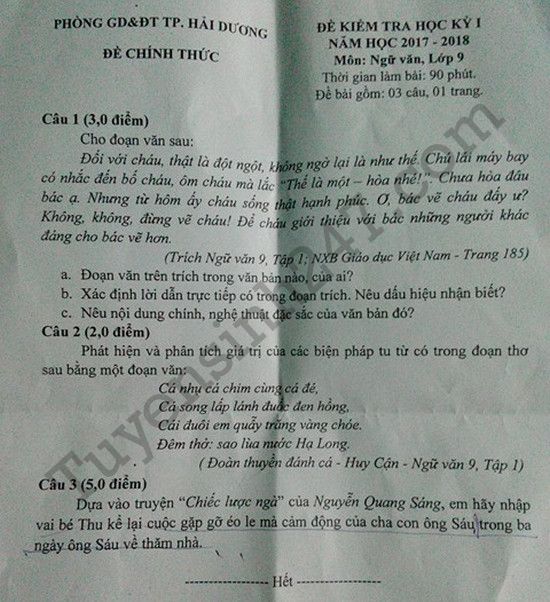 PHÒNG GD&ĐT TP. HẢI DƯƠNG
ĐỀ CHÍNH THỨC
ĐỀ KIỂM TRA HỌC KỲ I
NĂM HỌC 2017 - 2018
Môn: Ngữ văn, Lớp 9
Thời gian làm bài: 90 phút.
Đề bài gồm: 03 câu, 01 trang.
Câu 1 (3,0 điểm)
Cho đoạn văn sau:
Đối với cháu, thật là đột ngột, không ngờ lại là như thế. Chú lái máy bay
có nhắc đến bố cháu, ôm cháu mà lắc "Thế là một – hòa nhé!". Chưa hòa đâu
bác ạ. Nhưng từ hôm ấy cháu sống thật hạnh phúc. Ơ, bác vẽ cháu đấy ư?
Không, không, đừng vẽ cháu! Để cháu giới thiệu với bác những người khác
đáng cho bác vẽ hơn.
(Trích Ngữ văn 9, Tập 1; NXB Giáo dục Việt Nam - Trang 185)
a. Đoạn văn trên trích trong văn bản nào, của ai?
b. Xác định lời dẫn trực tiếp có trong đoạn trích. Nêu dấu hiệu nhận biết?
c. Nêu nội dung chính, nghệ thuật đặc sắc của văn bản đó?
Câu 2 (2,0 điểm)
Phát hiện và phân tích giá trị của các biện pháp tu từ có trong đoạn thơ
sau bằng một đoạn văn:
Cá nhụ cá chim cùng cá đé,
Cá song lấp lánh đuốc đen hồng,
Cái đuôi em quẫy trăng vàng chóe.
Đêm thở: sao lùa nước Hạ Long.
( Đoàn thuyền đánh cá - Huy Cận - Ngữ văn 9, Tập 1)
Câu 3 (5,0 điểm)
Dựa vào truyện "Chiếc lược ngà" của Nguyễn Quang Sáng, em hãy nhập
vai bé Thu kể lại cuộc gặp gỡ éo le mà cảm động của cha con ông Sáu trong ba
ngày ông Sáu về thăm nhà.
---------------- Hết ----------------
Tuyensinh247.com